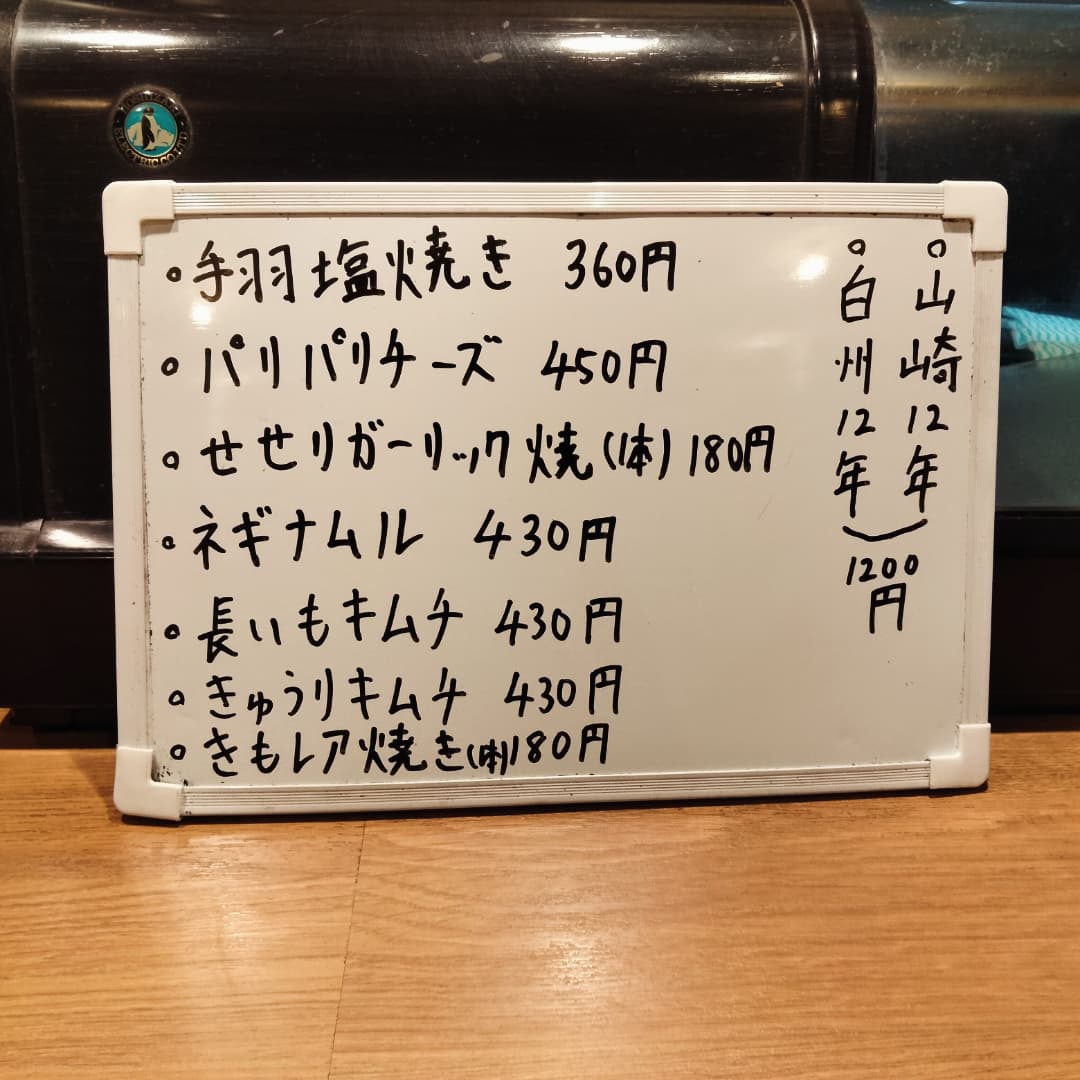 HOSHIZAKI
ELECTRIC CO., LTD.
。手羽塩焼き 360円
。パリパリチーズ 450円
。せせりガーリック焼(1本)180円
。ネギナムル 430円
。長いもキムチ 430円
。きゅうりキムチ 430円
。きもレア焼き(1本)180円
。山崎12年
。白州12年
1200円